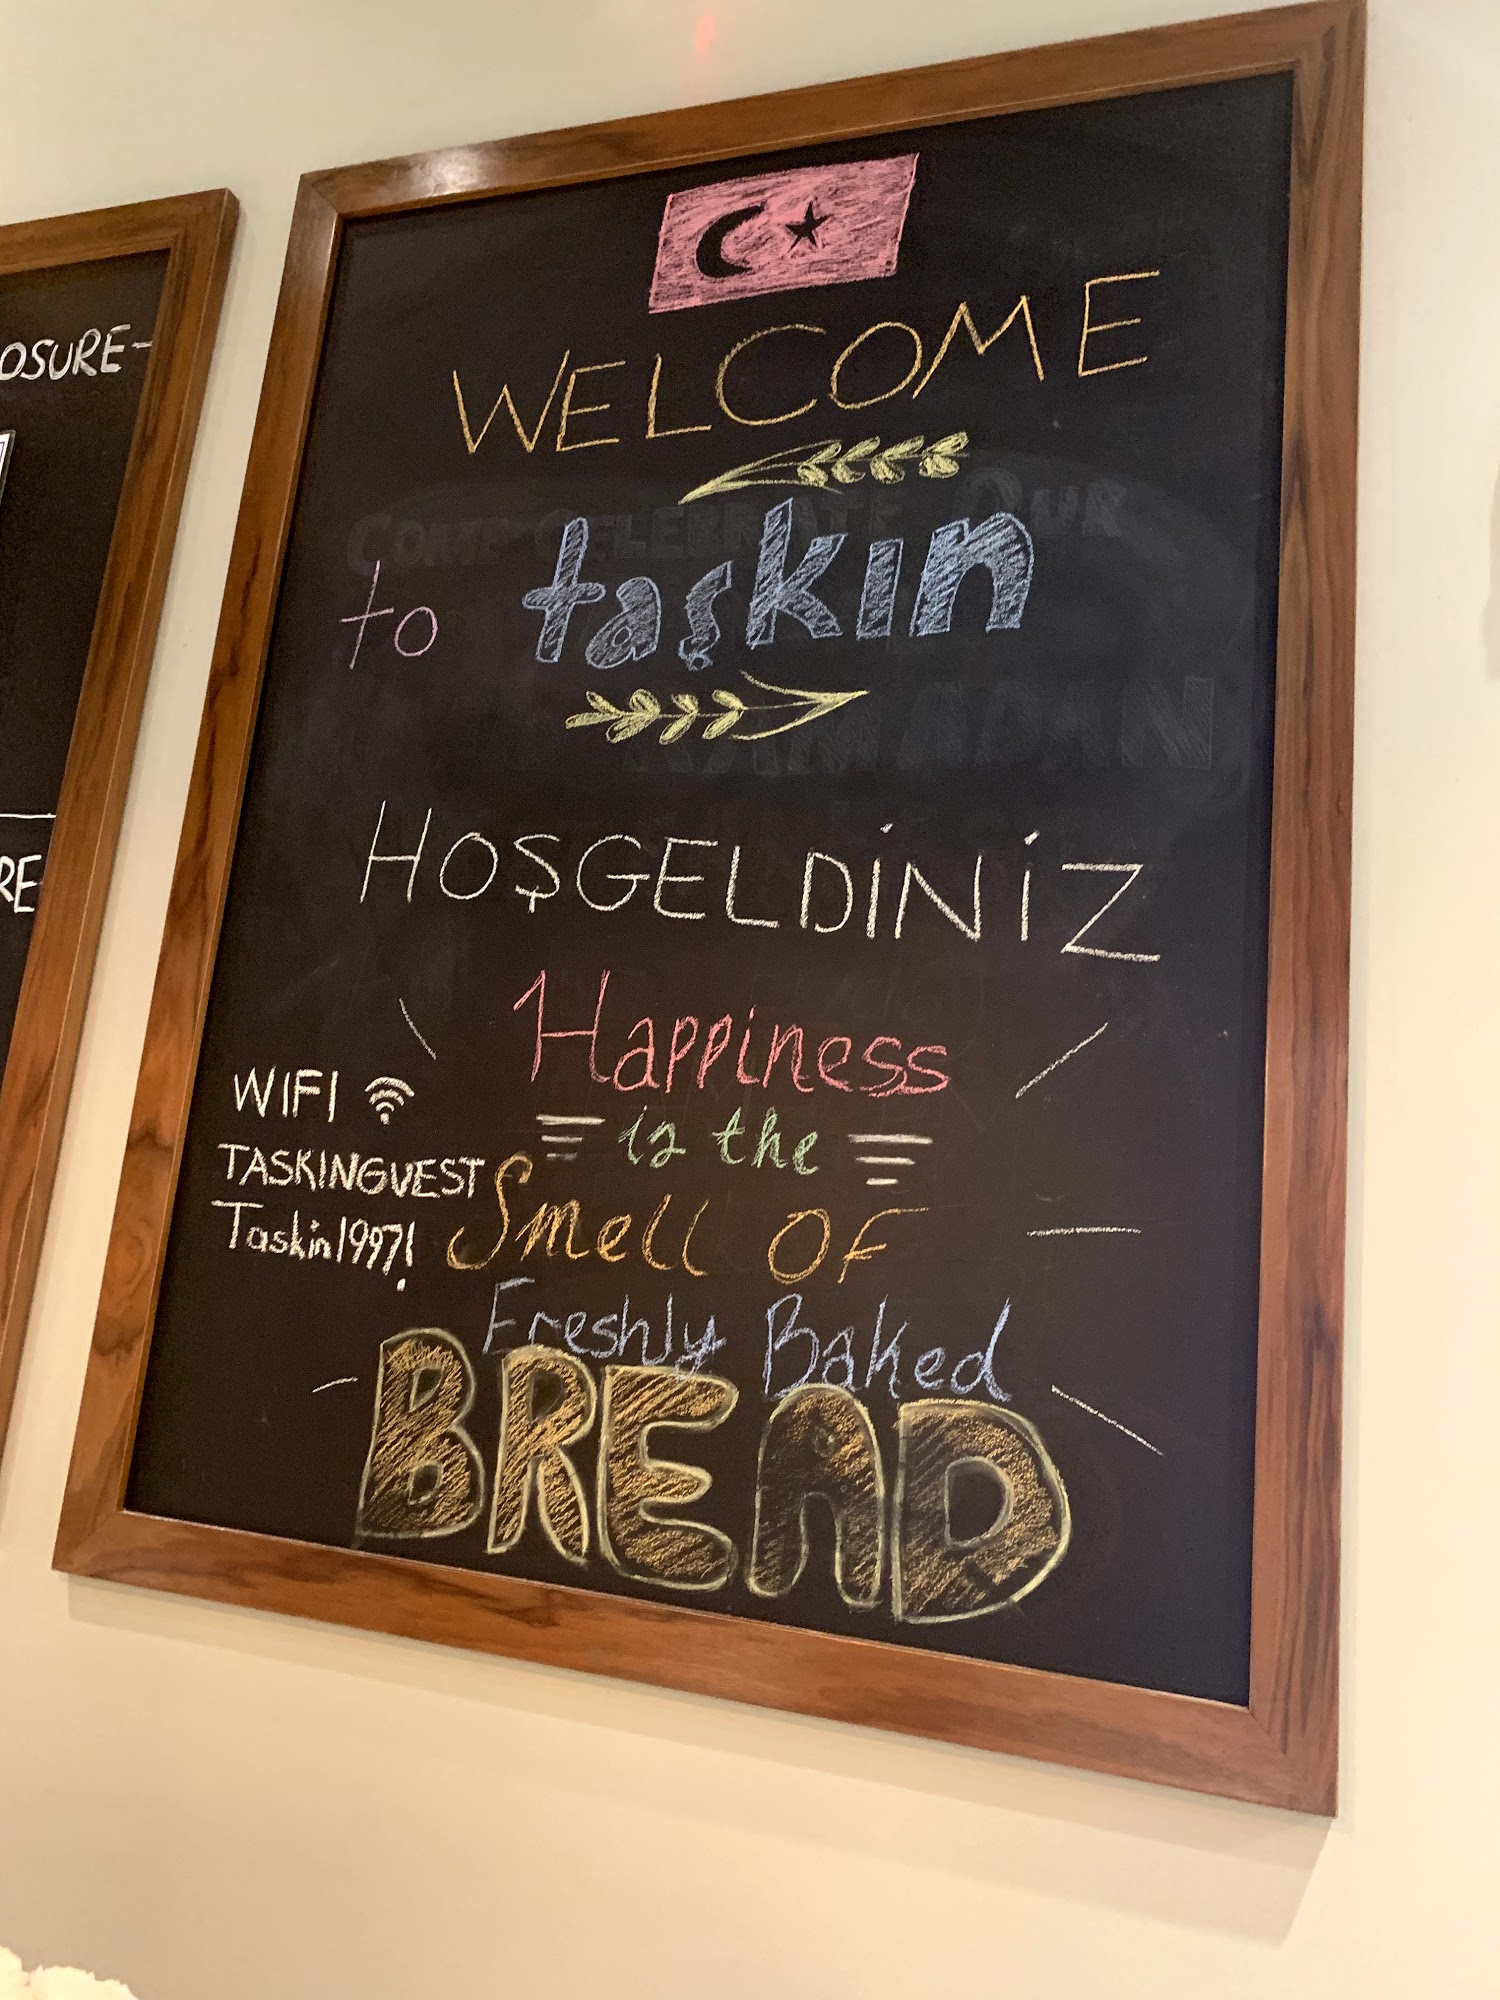 OSURE-
RE
WELCOME
to taşkın
HOŞGELDİNİZ
Happiness
is the
Smell OF
Freshly Baked
BREAD
WIFI
TASKINGUEST
Taskin1997!
COME CELEBRATE OUR
RAMADAN